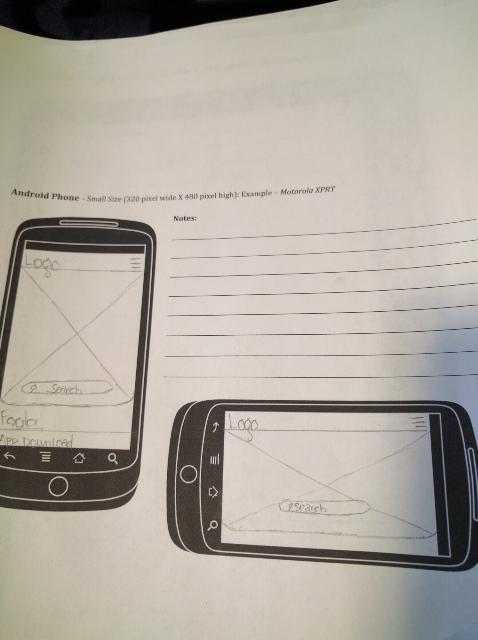 Android Phone - Small Size (320 pixel wide X 480 pixel high): Example - Motorola XPRT
Notes:
Logo
Search
Footer
App Download
Logo
Search